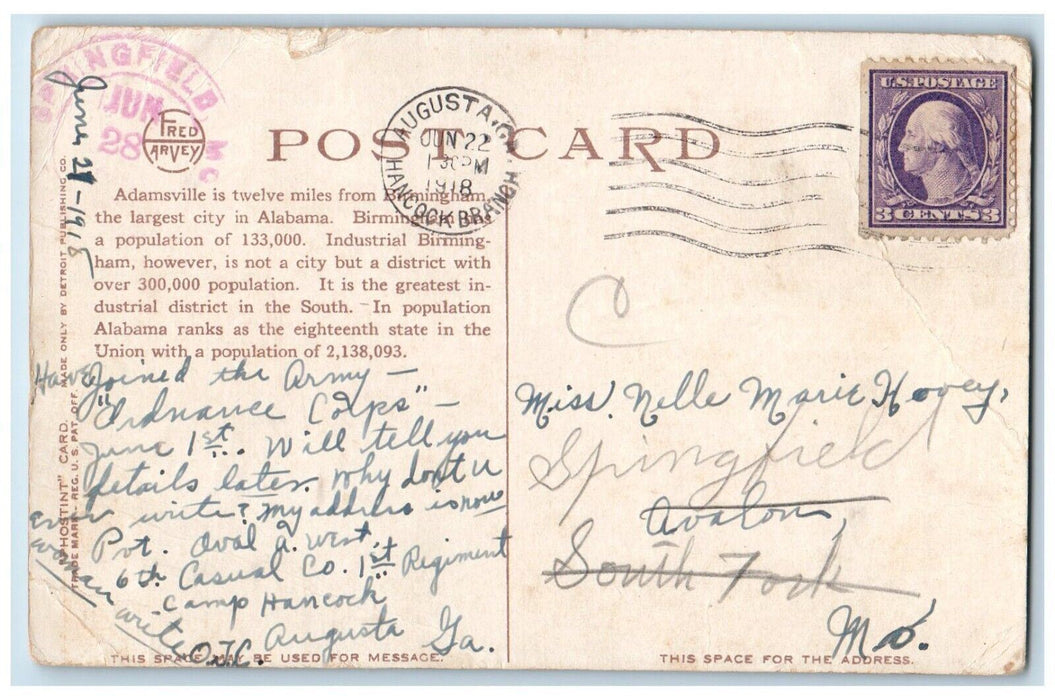 SPRINGFIELD
JUN
28
MO
June 21-1918
FRED
HARVEY
POST CARD
AUGUSTA, GA.
JUN 22
1 30 PM
1918
HANCOCK BRANCH
U.S. POSTAGE
3 CENTS 3
Adamsville is twelve miles from Birmingham,
the largest city in Alabama. Birmingham has
a population of 133,000. Industrial Birming-
ham, however, is not a city but a district with
over 300,000 population. It is the greatest in-
dustrial district in the South. In population
Alabama ranks as the eighteenth state in the
Union with a population of 2,138,093.
"PHOSTINT" CARD. MADE ONLY BY DETROIT PUBLISHING CO.
TRADE MARK - REG. U. S. PAT. OFF.
Have Joined the Army —
"Ordnance Corps" —
June 1st. Will tell you
details later. Why don't u
ever write? My address is now
Pvt. Oval A. West,
6th Casual Co. 1st Regiment
Camp Hancock
Augusta Ga.
O.T.C.
write
C
Miss. Nelle Marie Hovey,
Springfield
Avalon,
South Fork
Mo.
THIS SPACE MAY BE USED FOR MESSAGE.
THIS SPACE FOR THE ADDRESS.